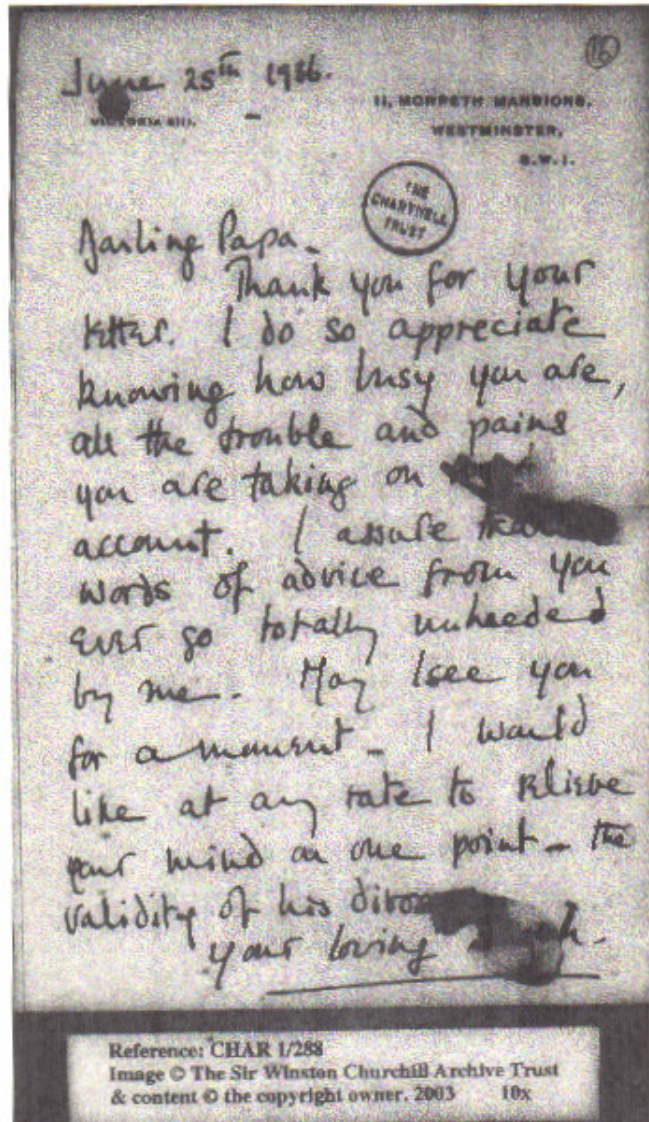 16
June 25th 1936.
VICTORIA
11, MORPETH MANSIONS,
WESTMINSTER,
S.W.1.
THE
CHARTWELL
TRUST
Darling Papa -
Thank you for your
letter. I do so appreciate
knowing how busy you are,
all the trouble and pains
you are taking on
account. I assure
words of advice from you
ever go totally unheeded
by me. May I see you
for a moment - I would
like at any rate to relieve
your mind on one point - the
validity of his
your loving
Reference: CHAR 1/288
Image © The Sir Winston Churchill Archive Trust
& content © the copyright owner, 2003 10x